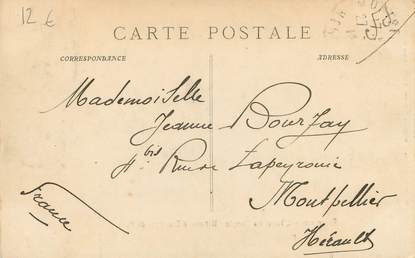 12 €
CARTE POSTALE
CORRESPONDANCE
ADRESSE
Mademoiselle
Jeanne Bourjay
4 bis Rue Lapeyronie
Montpellier
Hérault
France